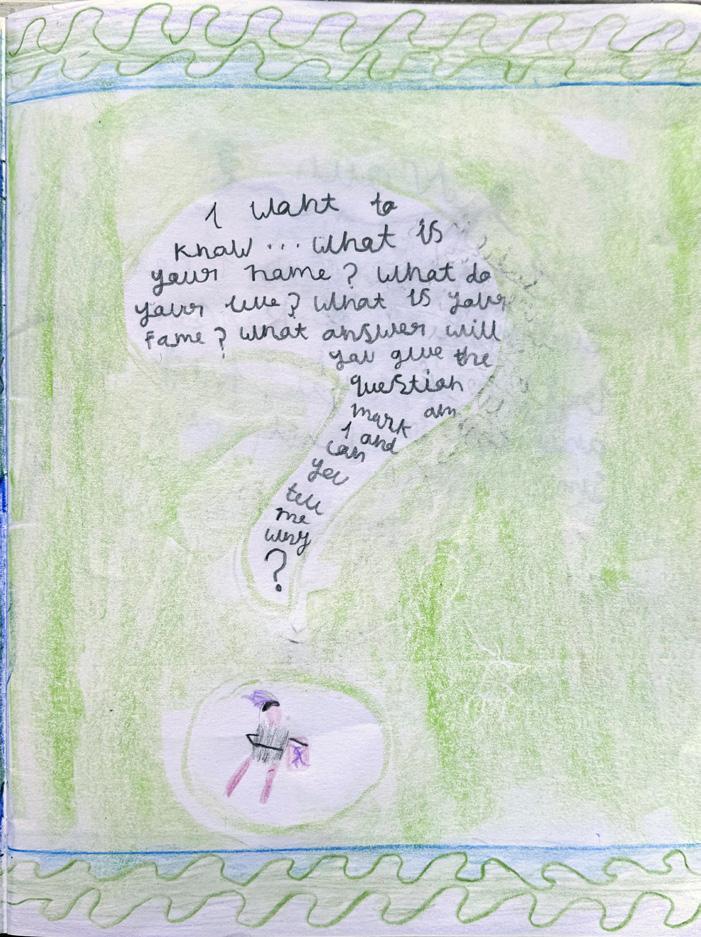 I want to
know... what is
your name? what do
your live? what is your
fame? what answer will
you give the
question
mark am
I and
can
you
tell
me
why
?